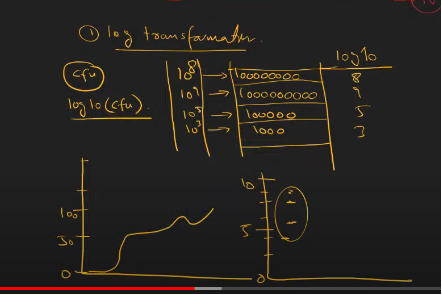 ① log transformation.
cfu
log10(cfu).
log10
10^8 → 100000000 8
10^9 → 1000000000 9
10^5 → 100000 5
10^3 → 1000 3
100
50
0
10
5
0